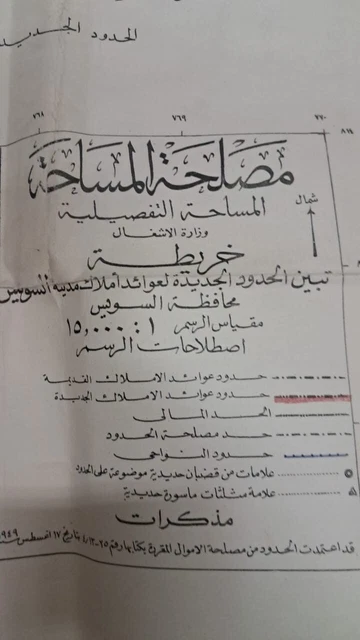 الحدود الجديد
٧٦٨ ٧٦٩ ٧٧٠
مصلحة المساحة
المساحة التفصيلية
شمال
وزارة الاشغال
خريطة
تبين الحدود الجديدة لعوائد أملاك مدينة السويس
محافظة السويس
مقياس الرسم ١ : ١٥,٠٠٠
اصطلاحات الرسم
حدود عوائد الاملاك القديمة
حدود عوائد الاملاك الجديدة
الحد المالى
حد مصلحة الحدود
حدود النواحى
علامات من قضبان حديدية موضوعة على الحدود
علامة مثلثات ماسورة حديدية
مذكرات
قد اعتمدت الحدود من مصلحة الاموال المقررة بكتابها رقم بتاريخ ١٧ اغسطس ١٩٤٩